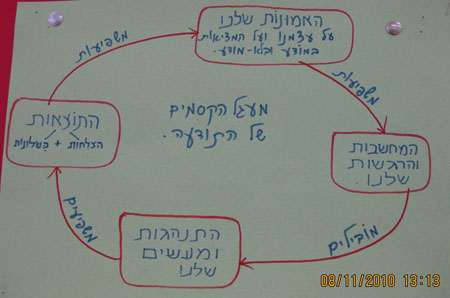 האמונות שלנו
על עצמנו ועל המציאות
במודע ובלא-מודע.
משפיעות
המחשבות
והרגשות
שלנו.
מובילים
התנהגות
ומעשים
שלנו
משפיעים
התוצאות
הצלחות + כשלונות
משפיעות
מעגל הקסמים
של התודעה.
08/11/2010 13:13